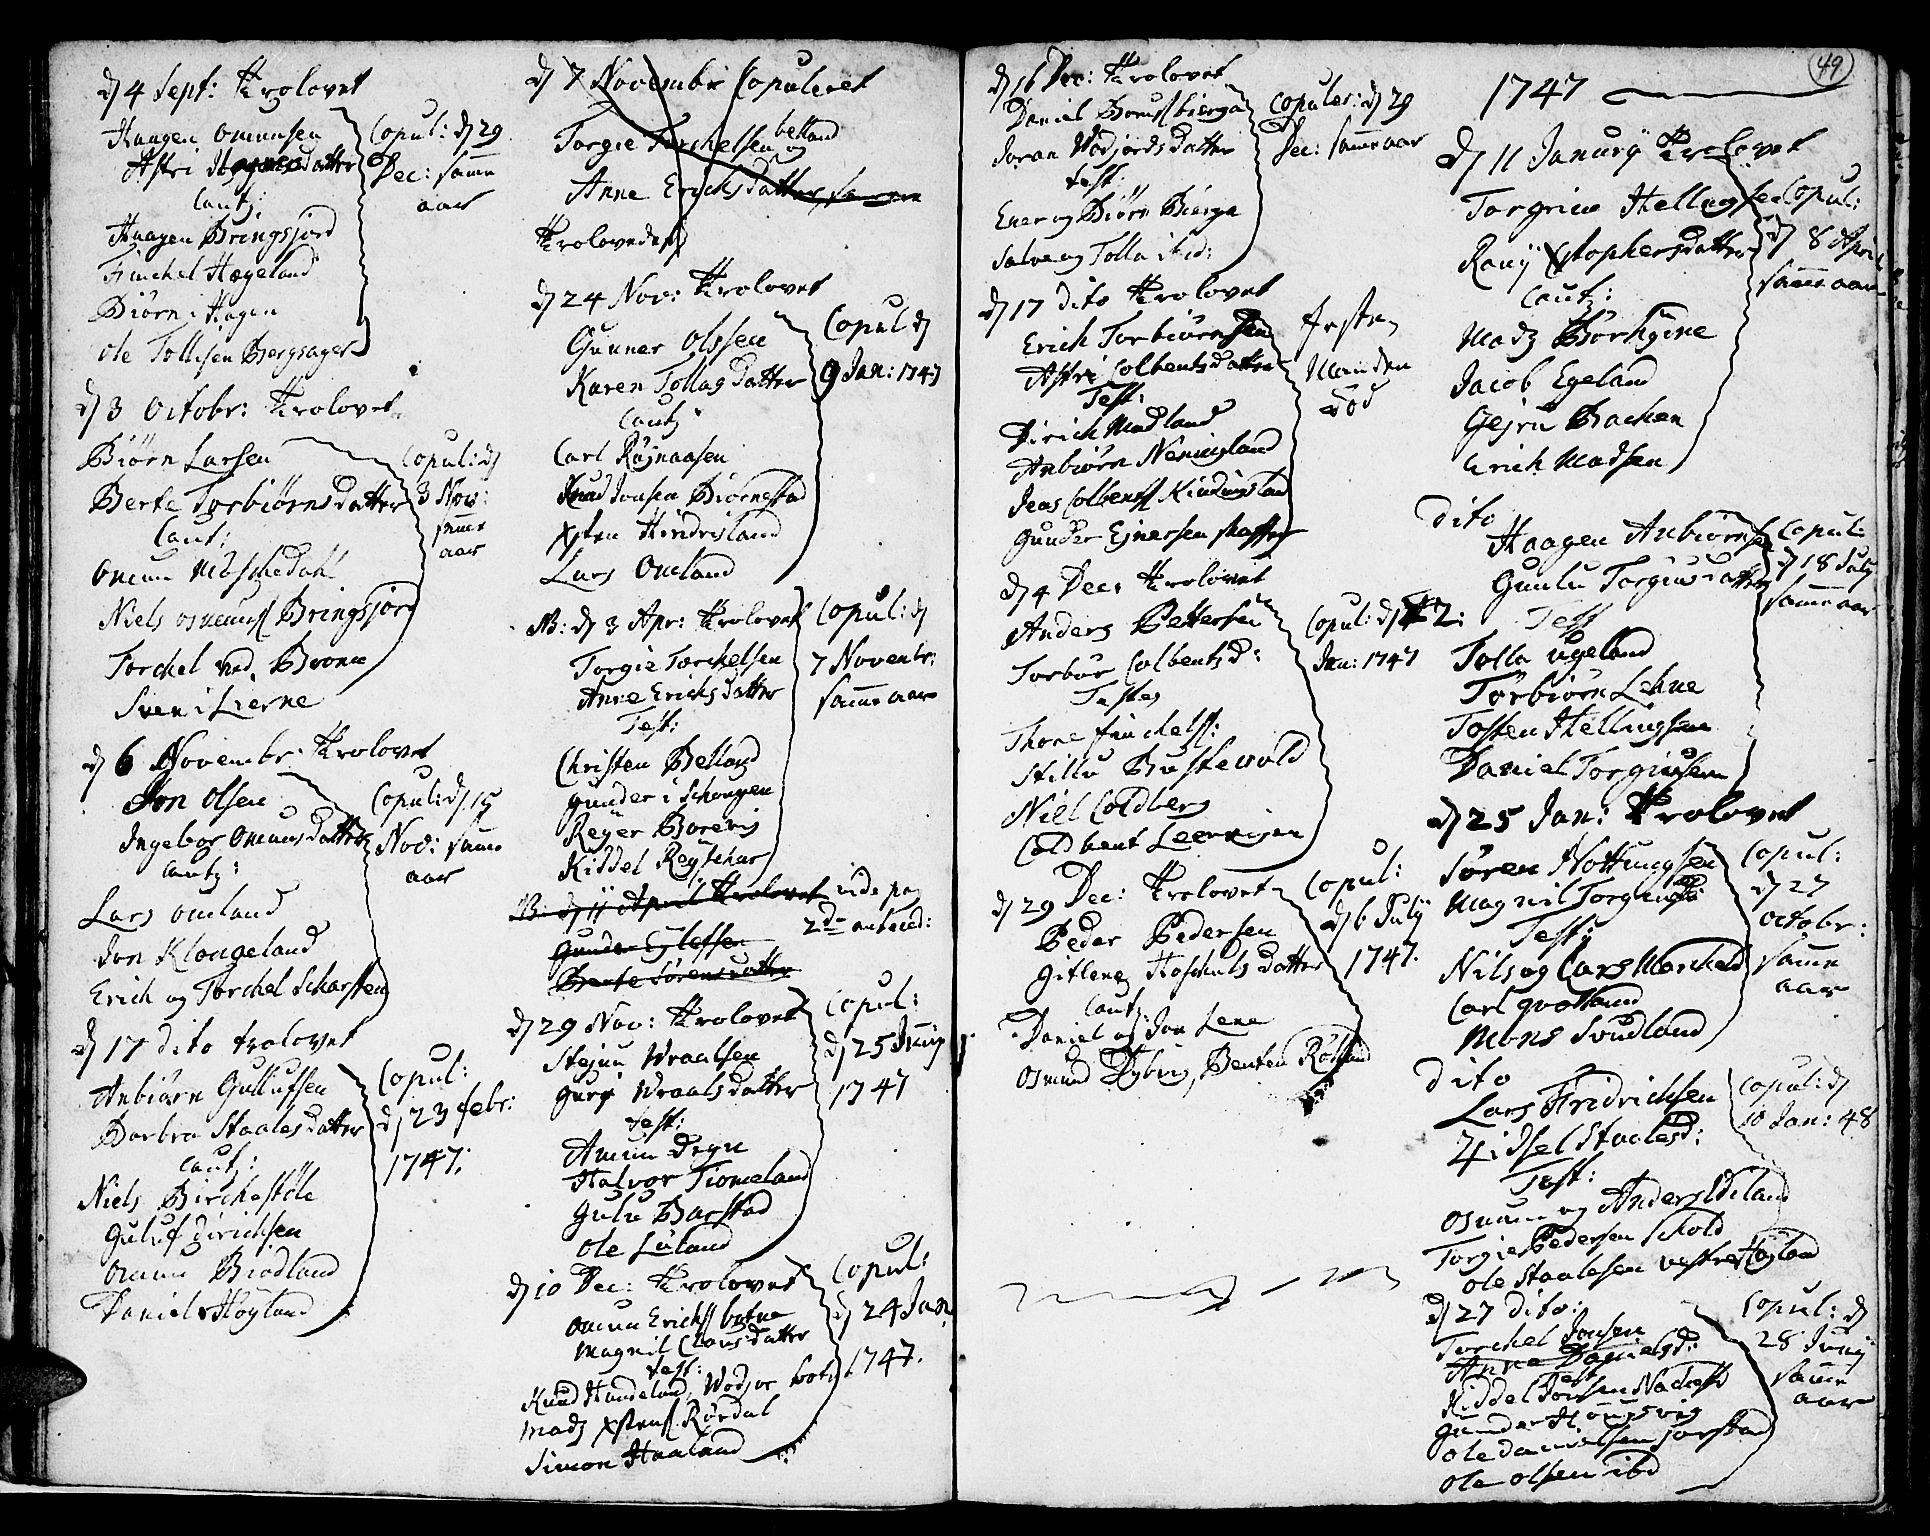 d 4 Sept: Trolovet
Haagen Omunsen
Astri Datter
Cautz:
Haagen Bringsjord
Finckel Hægeland
Biørn i Hagen
Ole Tollisen Bergsager
Copul: d 29
Dec: samme
aar
d 3 Octobr: Trolovet
Biørn Larsen
Berte Torbiørns Datter
Caut:
Omun
Niels Osmuns Bringsjord
Torchel ved Broen
Sven i Lierne
Copul: d
3 Nov:
samme
aar
d 6 Novembr: Trolovet
Jon Olsen
Ingebor Omuns Datter
Cautz:
Lars Omland
Jon Klongeland
Erich og Torchel Scharsten
Copul: d 15
Nov: samme
aar
d 17 dito trolovet
Anbiørn Gullufsen
Barbra Staales Datter
Cautz:
Niels Birchestøle
Guluf Dirichsen
Omun Biodland
Daniel Høyland
Copul:
d 23 febr:
1747:
d 7 Novembr Copuleret
Torgie Torchelsen belland og
Anne Erichs Datter
Trolovede
d 24 Nov: Trolovet
Gunner Olssen
Karen Tollags Datter
Cautz
Carl Røjnaasen
Knud Jonsen Biørnestad
Xsten Hindrisland
Lars Omland
Copul d
9 Jan: 1747
NB: d 3 Apr: Trolovet
Torgie Torchelsen
Anne Erichs Datter
Test:
Christen Belland
Gunder i Schougen
Reyer Borevig
Kiddel Reyerschar
Copul: d
7 Novembr:
samme aar
NB: d 11 April Trolovet
Gunder Eylefsen
Berte Sørens Datter
vide pag
2de
d 29 Nov: Trolovet
Stejnu Wraalsen
Guri Wraals Datter
test:
Amun Degn
Halvor Tiomeland
Gulu Barstad
Ole Luland
Copul:
d 25 Junij
1747
d 10 Dec: Trolovet
Omun Erichs botne
Magnil Claus Datter
test:
Knud Hundeland,
Madz Xstens. Rørdal
Simon Haaland
Copul:
d 24 Jan
1747.
d 16 Dec: Trolovet
Daniel bierga
Joran Wodjords Datter
test:
Ener og Biørn Bierga
Salve og Tolla ibid:
Copuler: d 29
Dec: samme aar
d 17 dito Trolovet
Erich Torbiørnsen
Astri Colbents Datter
Test:
Dirich Madland
Anbiørn Neningland
Jens Colbents
Gunder Ejnersen
festen
Manden
død
d 4 Dec: Trolovet
Anders Pettersen
Torbor Colbents D:
Testes
Thore finchels:
Stillu Bustevold
Niel Coldberg
Coldbent Leervigen
Copul: d 12:
Jan: 1747
d 29 Dec: Trolovet
Peder Pedersen
Gitlene Hoschuls Datter
Cautz
Daniel og Jon Lene
Osmund Dybvig, Benten Rølland
Copul:
d 6 Julij
1747.
49
1747
d 11 Janury Trolovet
Torgrim Hellugsen
Ronij Xstophersdatter
Cautz:
Madz Børhgine
Jacob Egeland
Gejru Backen
Erich Madsen
Copul:
d 8 April
samme aar
dito
Haagen Anbiørnsen
Gunlu Torgius Datter
Test
Tolla Ugeland
Torbiørn Lehne
Tosten Hellugsen
Daniel Torgiusen
Copul:
d 18 July
samme aar
d 25 Jan: Trolovet
Søren Nottungsen
Magnil Torgius D:
Test:
Nils og Lars
Carl Qvolland
Mons Sudland
Copul:
d 27
Octobr:
samme
aar
dito
Lars Fridrichsen
Zidsel Staalesd:
Test:
Osmun og Anders Ildeland
Torgie Pedersen Skold
Ole Staalesen vestre Høyland
Copul: d
10 Jan: 48
d 27 dito:
Torchel Jonsen
Anne Danielsd:
Test
Kiddel Torsen
Gunder
Ole Danielsen Jorstad
Ole Olsen ibd
Copul: d
28 Junij
samme
aar